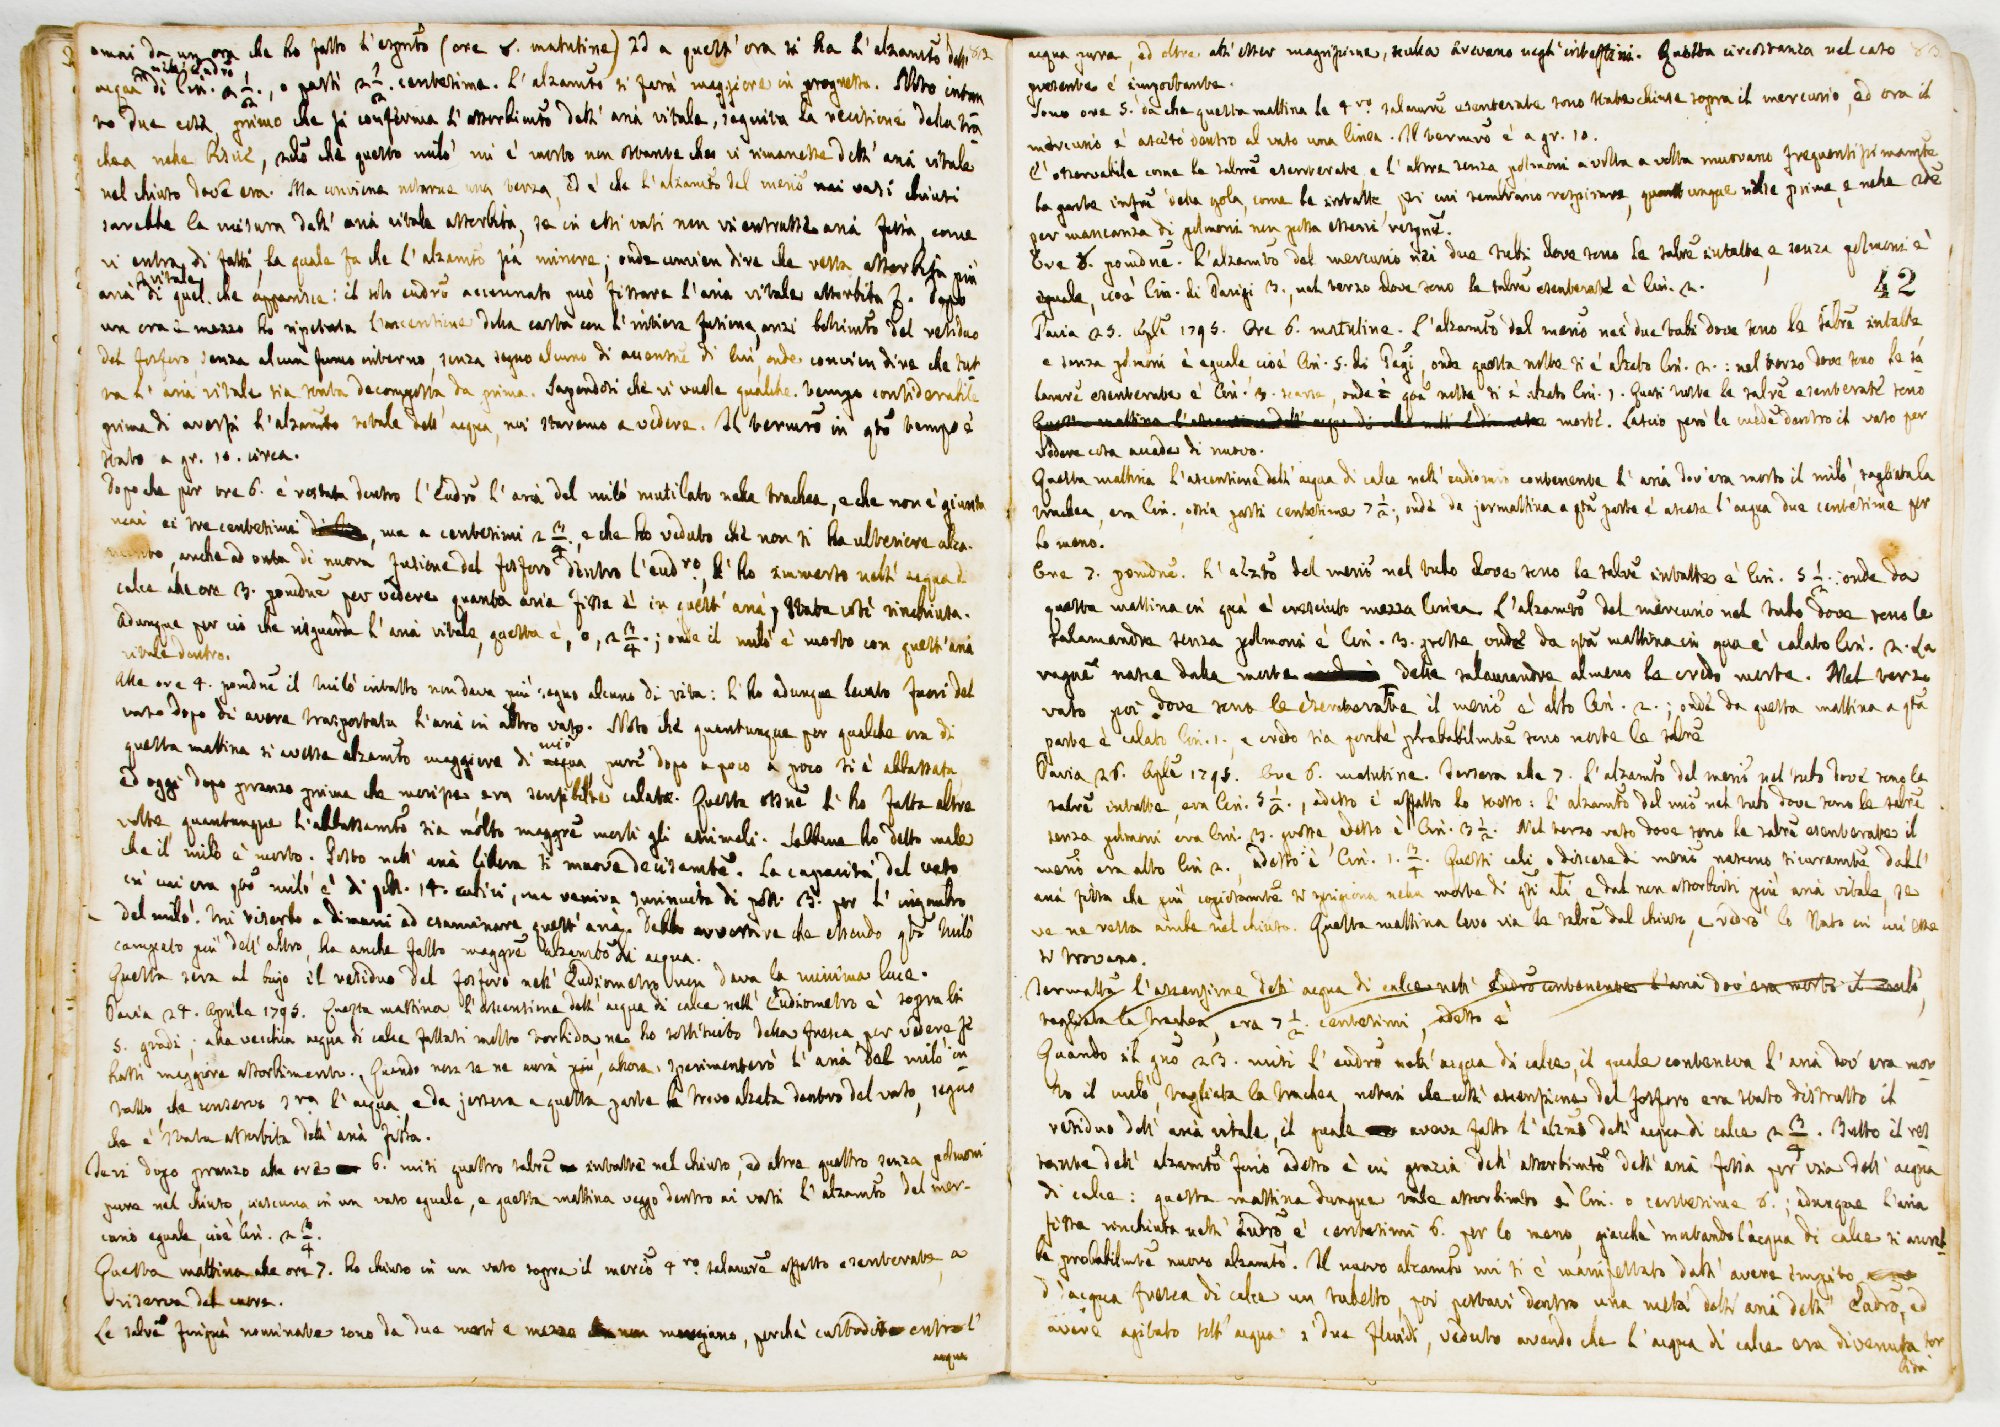 omai da un ora che ho fatto l'esprito (ore 8. matutine) Ed a quest'ora si ha l'alzamto dell' 82
nell' eudro
acqua di lin. 2 1/2., o parti 2 1/2. centesime. L'alzamto si farà maggiore in progresso. Noto intan
to due cose, primo che si conferma l'assorbimto dell'aria vitale, seguita la recisione della tra
chea nelle biscie, 2do che questo milo' mi è morto non ostante che vi rimanesse dell'aria vitale
nel chiuso dov'era. Ma conviene notarne una terza, Ed è che l'alzamto del merio nei vasi chiusi
sarebbe la misura dell'aria vitale assorbita, se in essi vasi non vi entrasse aria fissa, come
vi entra di fatti, la quale fa che l'alzamto sia minore; onde convien dire che resta assorbita più
vitale
aria di quel che apparisce: il solo eudro accennato può fissare l'aria vitale assorbita. Dopo
un ora e mezzo ho ripetuta l'ascensione della carta con l'intiera fusione, anzi bollimto del residuo
del fosforo, senza alcun fumo interno, senza segno alcuno di accensne di lui, onde convien dire che tut
ta l'aria vitale sia stata decomposta da prima. Sapendosi che vi vuole qualche tempo considerabile
prima di aversi l'alzamto totale dell'acqua, noi staremo a vedere. Il termtro in qto tempo è
stato a gr. 10. circa.
Dopo che per ore 6. è restata dentro l'Eudro l'aria del milo' mutilato nella trachea, e che non è giunta
mai ai tre centesimi, ma a centesimi 2 3/4., e che ho veduto che non si ha ulteriore alza-
mento, anche ad onta di nuova fusione del fosforo dentro l'eudro, l'ho immerso nell'acqua di
calce alle ore 3. pomdne per vedere quanta aria fissa è in quest'aria, stata così rinchiusa.
Adunque per ciò che risguarda l'aria vitale, questa è, 0, 2 3/4.; onde il milo' è morto con quest'aria
vitale dentro.
Alle ore 4. pomdne il milo' intatto non dava più segno alcuno di vita: l'ho adunque levato fuori del
vaso dopo di avere trasportata l'aria in altro vaso. Noto che quantunque per qualche ora di
merio
questa mattina si avesse alzamto maggiore di acqua pure dopo a poco a poco si è abbassata
ed oggi dopo pranzo prima che morisse era sensibilte calato. Questa ossne l'ho fatta altre
volte quantunque l'abbassamto sia molto maggre morti gli animali. Sebbene ho detto male
che il milo è morto. Posto nell'aria libera si muove decisamte. La capacità del vaso
in cui era qto milo' è di poll. 14. cubici, ma veniva sminuita di poll. 3. per l'ingombro
del milo'. Mi riserbo a dimani ad esaminare quest'aria. Debbo avvertire che essendo qto milo'
campato più dell'altro, ha anche fatto maggre alzamto di acqua.
Questa sera al bujo il residuo del fosforo nell'Eudiometro non dava la minima luce.
Pavia 24. Aprile 1795. Questa mattina l'ascensione dell'acqua di calce nell'Eudiometro è sopra li
5. gradi; alla vecchia acqua di calce fattasi molto torbida ne ho sostituito della fresca per vedere se
hassi maggiore assorbimento. Quando non se ne avrà più, allora sperimenterò l'aria del milo' in
tatto che conservo sra l'acqua, e da jersera a questa parte la trovo alzata dentro del vaso, segno
che è stata assorbita dell'aria fissa.
Jeri dopo pranzo alle ore 6. misi quattro salre intatte nel chiuso, ed altre quattro senza polmoni
pure nel chiuso, ciascuna in un vaso eguale, e questa mattina veggo dentro ai vasi l'alzamto del mer-
curio eguale, cioè lin. 2 3/4.
Questa mattina alle ore 7. ho chiuso in un vaso sopra il mercio 4ro salamre affatto esenterate, a
riserva del cuore.
Le salre finquì nominate sono da due mesi e mezzo che non mangiano, perchè custodite entro l'
acqua
acqua pura, ed oltre all'esser magrissime, nulla avevano negl'intestini. Questa circostanza nel caso 83
presente è importante.
Sono ore 5. da che questa mattina le 4ro salamre esenterate sono state chiuse sopra il mercurio, ed ora il
mercurio è asceso dentro al vaso una linea. Il termtro è a gr. 10.
E' osservabile come le salre esenterate, e l'altre senza polmoni a volta a volta muovano frequentissimamte
la parte infre della gola, come le intatte, per cui sembrano respirare, quantunque nelle prime, e nelle 2de
per mancanza di polmoni non possa esservi respne.
Ore 8. pomdne. L'alzamto del mercurio nei due tubi dove sono le salre intatte, e senza polmoni è
eguale, cioè lin. di Parigi 3., nel terzo dove sono le salre esenterate è lin. 2. 42
Pavia 25. Aple 1795. Ore 6. matutine. L'alzamto del merio nei due tubi dove sono le salre intatte
e senza polmoni è eguale cioè lin. 5. di Pagi, onde questa notte si è alzato lin. 2.: nel terzo dove sono le sa
lamre esenterate è lin. 3. scarse, onde qta notte si è alzato lin. 1. Quasi tutte le salre esenterate sono
Questa mattina l'ascensione dell'acqua di morte. Lascio però le medme dentro il vaso per
vedere cosa accade di nuovo.
Questa mattina l'ascensione dell'acqua di calce nell'eudiomtro contenente l'aria dov'era morto il milo', tagliata la
trachea, era lin., ossia parti centesime 7 1/2., onde da jermattina a qta parte è ascesa l'acqua due centesime per
lo meno.
Ore 7. pomdne. L'alzto del merio nel tubo dove sono le salre intatte è lin. 5 1/2.; onde da
questa mattina in quà è cresciuto mezza linea. L'alzamto del mercurio nel tubo dove sono le
Salamandre senza polmoni è lin. 3. grosse, onde da qta mattina in qua è calato lin. 2. La
ragne nasce dalla morte delle salamandre almeno le credo morte. Nel terzo
vaso poi dove sono le esenterate il merio è alto lin. 2.; onde da questa mattina a qta
parte è calato lin. 1., e credo sia perchè probabilmte sono morte le salre
Pavia 26. Aple 1795. Ore 6. matutine. Jersera alle 7. l'alzamto del merio nel tubo dove sono le
salre intatte, era lin. 5 1/2., adesso è affatto lo stesso: l'alzamto del mio nel tubo dove sono le salre
senza polmoni era lin. 3. grosse, adesso è lin. 3 1/2. Nel terzo vaso dove sono le salre esenterate il
merio era alto lin 2., adesso è lin. 1. 3/4. Questi cali, o discese di merio nascono sicuramte dall'
aria fissa che più copiosamte si sprigiona nella morte di qti ali e dal non assorbirsi più aria vitale, se
ve ne resta anche nel chiuso. Questa mattina levo via le salre dal chiuso, e vedrò lo stato in cui esse
si trovano.
Jermattia l'ascensione dell'acqua di calce nell'Eudro contenente l'aria dov'era morto il milò,
tagliata la trachea, era 7 1/2. centesimi, adesso è
Quando il gno 23. misi l'eudro nell'acqua di calce, il quale conteneva l'aria dov'era mor-
to il milò, tagliata la trachea notai che coll'ascensione del fosforo era stato distrutto il
residuo dell'aria vitale, il quale aveva fatto l'alzmto dell'acqua di calce 2 3/4. Tutto il res-
tante dell'alzamto fino adesso è in grazia dell'assorbimto dell'aria fissa per via dell'acqua
di calce: questa mattina dunque tale assorbimto è lin. o centesime 6.; adunque l'aria
fissa rinchiusa nell'Eudro è centesimi 6. per lo meno, giacchè mutando l'acqua di calce si avreb-
be probabilmte nuovo alzamto. Il nuovo alzamto mi si è manifestato dall'avere empito
d'acqua fresca di calce un tubetto, poi postavi dentro una metà dell'aria dell'Eudro, ed
avere agitato sott'acqua i due fluidi, veduto avendo che l'acqua di calce era divenuta tor
bida